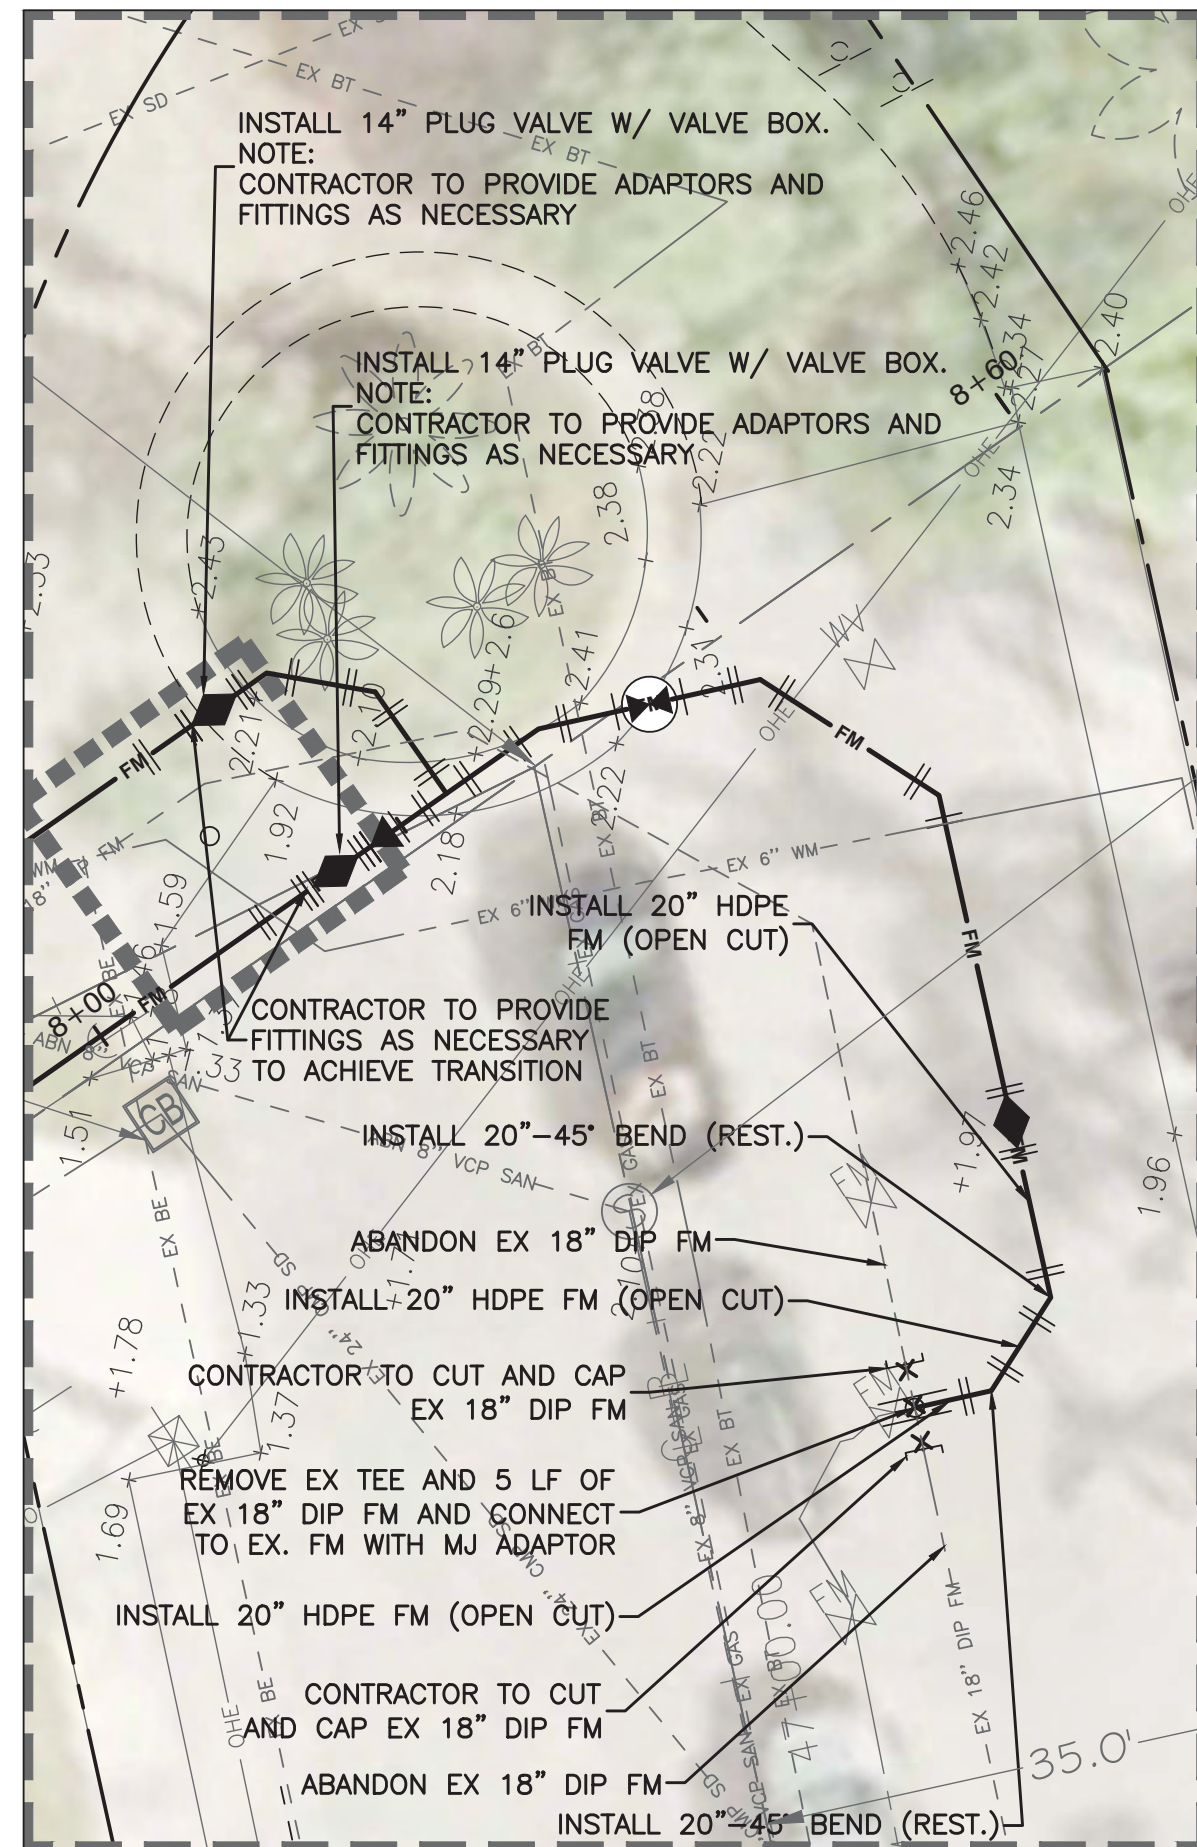 EX SD
EX BT
EX BT
INSTALL 14” PLUG VALVE W/ VALVE BOX.
NOTE:
CONTRACTOR TO PROVIDE ADAPTORS AND
FITTINGS AS NECESSARY
EX BT
OHE
+2.46
+2.42
2.40
8+60
INSTALL 14” PLUG VALVE W/ VALVE BOX.
NOTE:
CONTRACTOR TO PROVIDE ADAPTORS AND
FITTINGS AS NECESSARY
2.22
2.38
OHE
2.34
+2.43
WV
+2.41
OHE
2.21
FM
FM
1.92
2.18
2.22
EX 6” WM
EX 6”
1.59
INSTALL 20” HDPE
FM (OPEN CUT)
FM
8+00
FM
CONTRACTOR TO PROVIDE
FITTINGS AS NECESSARY
TO ACHIEVE TRANSITION
EX BT
CB
1.51
INSTALL 20”-45° BEND (REST.)
ABN 8” VCP SAN
+1.97
FM
1.96
EX BE
ABANDON EX 18” DIP FM
INSTALL 20” HDPE FM (OPEN CUT)
+1.33
+1.78
CONTRACTOR TO CUT AND CAP
EX 18” DIP FM
FM
1.37
REMOVE EX TEE AND 5 LF OF
EX 18” DIP FM AND CONNECT
TO EX. FM WITH MJ ADAPTOR
1.69
EX BT
INSTALL 20” HDPE FM (OPEN CUT)
FM
EX 18” DIP FM
CONTRACTOR TO CUT
AND CAP EX 18” DIP FM
OHE
EX BE
35.0'
ABANDON EX 18” DIP FM
INSTALL 20”-45° BEND (REST.)